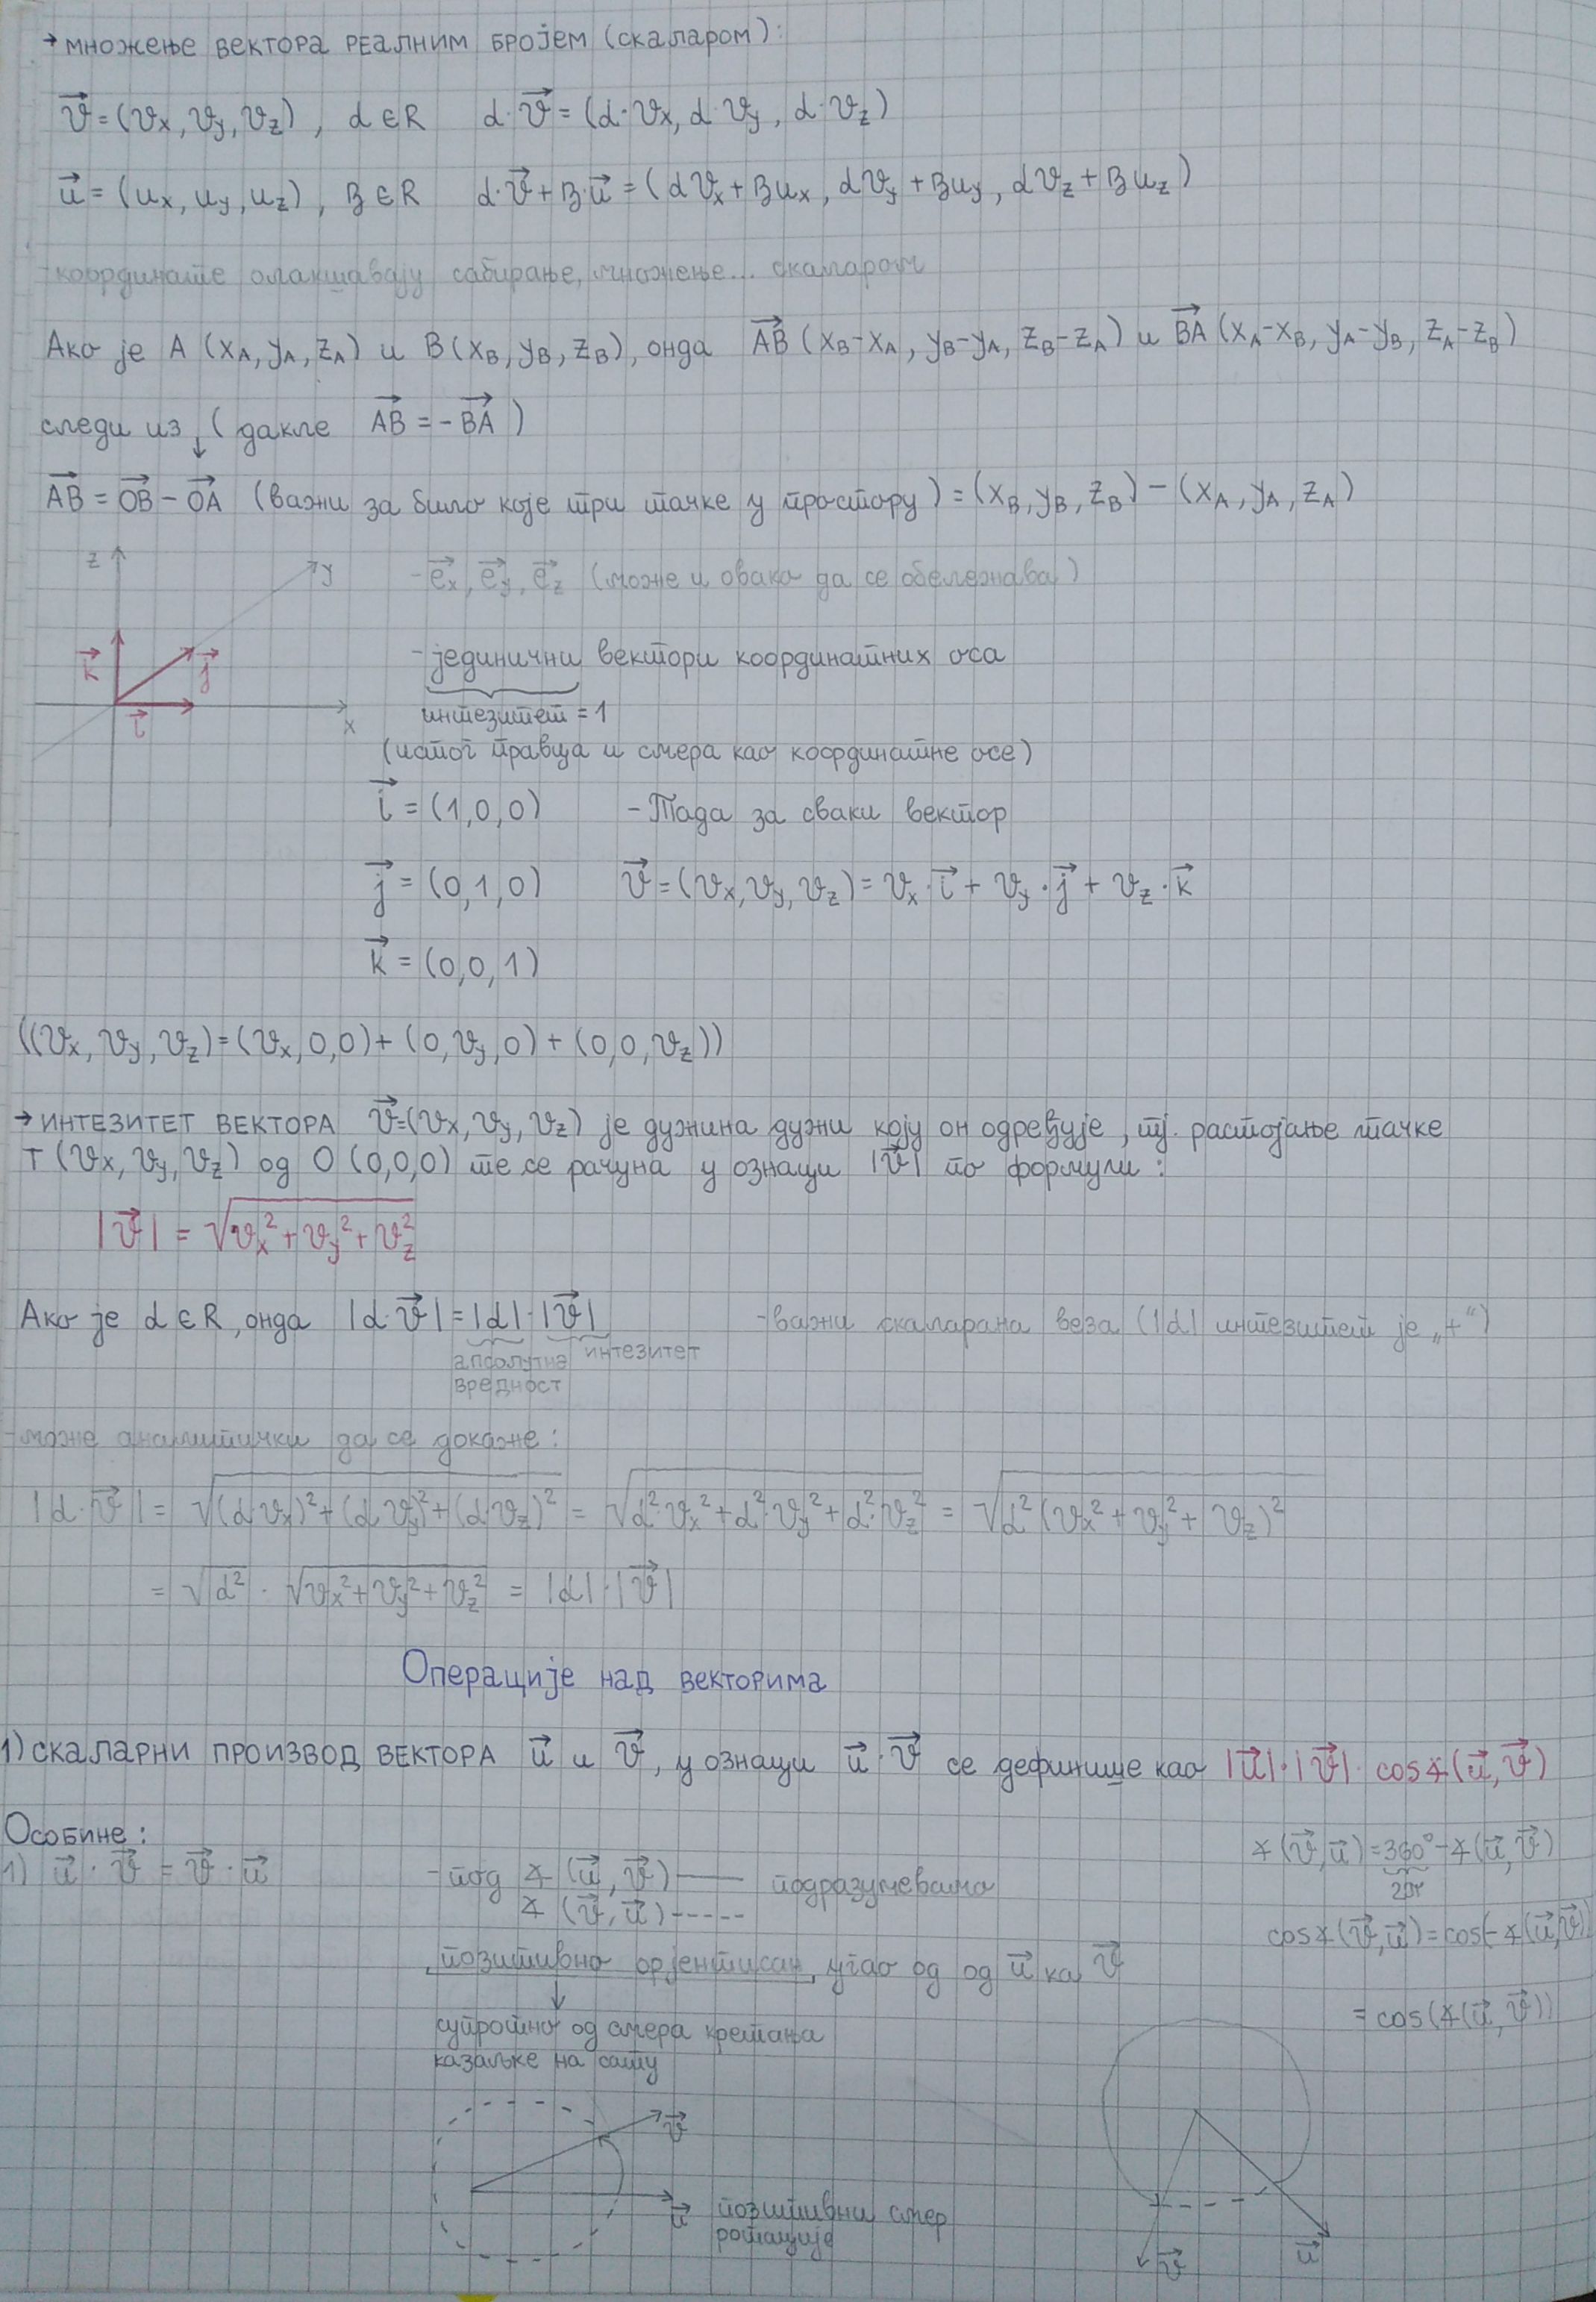 → МНОЖЕЊЕ ВЕКТОРА РЕАЛНИМ БРОЈЕМ (СКАЛАРОМ):
v⃗ = (vx, vy, vz), α ∈ R   α·v⃗ = (α·vx, α·vy, α·vz)
u⃗ = (ux, uy, uz), β ∈ R   α·v⃗ + β·u⃗ = (αvx + βux, αvy + βuy, αvz + βuz)
- координате олакшавају сабирање, множење... скаларом
Ако је A (xA, yA, zA) и B (xB, yB, zB), онда AB⃗ (xB-xA, yB-yA, zB-zA) и BA⃗ (xA-xB, yA-yB, zA-zB)
следи из ↓ (дакле AB⃗ = -BA⃗)
AB⃗ = OB⃗ - OA⃗ (важи за било које три тачке у простору) = (xB, yB, zB) - (xA, yA, zA)
z y
- e⃗x, e⃗y, e⃗z (може и овако да се обележава)
k⃗ j⃗
- јединични вектори координатних оса
i⃗ x
интезитет = 1
(истог правца и смера као координатне осе)
i⃗ = (1,0,0)   - Тада за сваки вектор
j⃗ = (0,1,0)   v⃗ = (vx, vy, vz) = vx·i⃗ + vy·j⃗ + vz·k⃗
k⃗ = (0,0,1)
((vx, vy, vz) = (vx,0,0) + (0,vy,0) + (0,0,vz))
→ ИНТЕЗИТЕТ ВЕКТОРА v⃗=(vx, vy, vz) је дужина дужи коју он одређује, тј. растојање тачке
T (vx, vy, vz) од O (0,0,0) те се рачуна у ознаци |v⃗| по формули:
|v⃗| = √(vx² + vy² + vz²)
Ако је α ∈ R, онда |α·v⃗| = |α|·|v⃗|   - важи скаларана веза (|α| интезитет је „+“)
апсолутна интезитет
вредност
- може аналитички да се докаже:
|α·v⃗| = √((α·vx)² + (α·vy)² + (α·vz)²) = √(α²·vx² + α²·vy² + α²·vz²) = √(α²(vx² + vy² + vz)²)
= √α² · √(vx² + vy² + vz²) = |α|·|v⃗|
Операције над векторима
1) СКАЛАРНИ ПРОИЗВОД ВЕКТОРА u⃗ и v⃗, у ознаци u⃗·v⃗ се дефинише као |u⃗|·|v⃗|·cos∡(u⃗, v⃗)
Особине:
1) u⃗·v⃗ = v⃗·u⃗
- под ∡(u⃗, v⃗) —— подразумевамо
∡(v⃗, u⃗) -----
позитивно орјентисан угао од од u⃗ ка v⃗
↓
супротно од смера кретања
казаљке на сату
v⃗
u⃗ позитивни смер
ротације
∡(v⃗, u⃗) = 360° - ∡(u⃗, v⃗)
2π
cos∡(v⃗, u⃗) = cos(-∡(u⃗, v⃗))
= cos(∡(u⃗, v⃗))
v⃗ u⃗